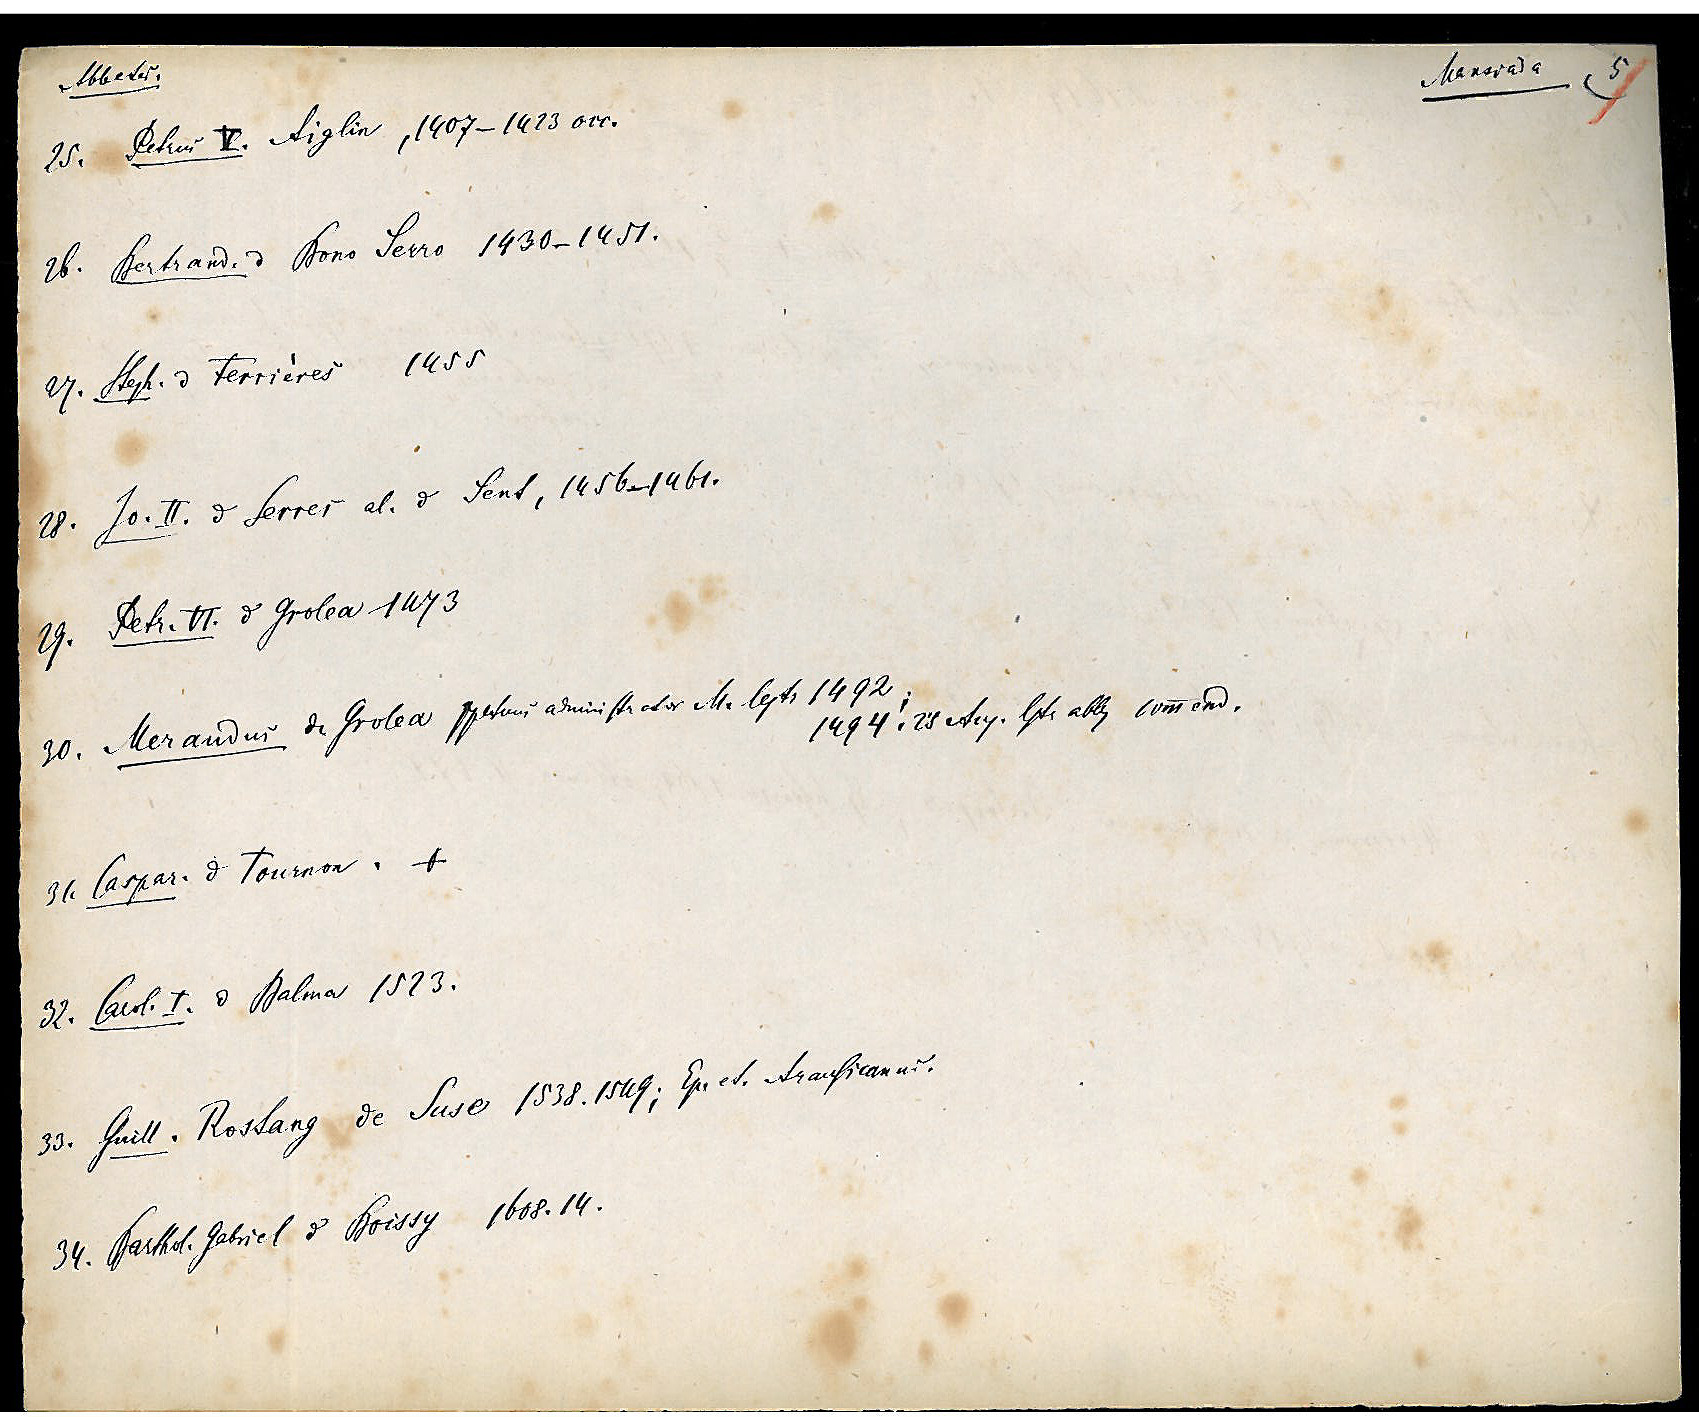 Abbates.
Mansiada 5
25. Petrus V. Aiglin, 1407–1423 occ.
26. Bertrand. d Bono Serro 1430–1451.
27. Steph. d Ferrières 1455
28. Jo. II. d Serres al. d Sent, 1456–1461.
29. Petr. VI. d Grolea 1473
30. Merandus de Grolea ppetuus administrator M. 1492;
1494. 28 Aug. abb commend.
31. Caspar. d Tournon. +
32. Carol. I. d Balma 1523.
33. Guill. Rostang de Suse 1538. 1549; Ep. et. Arausicanus.
34. Barthol. Gabriel d Boissy 1608. 14.